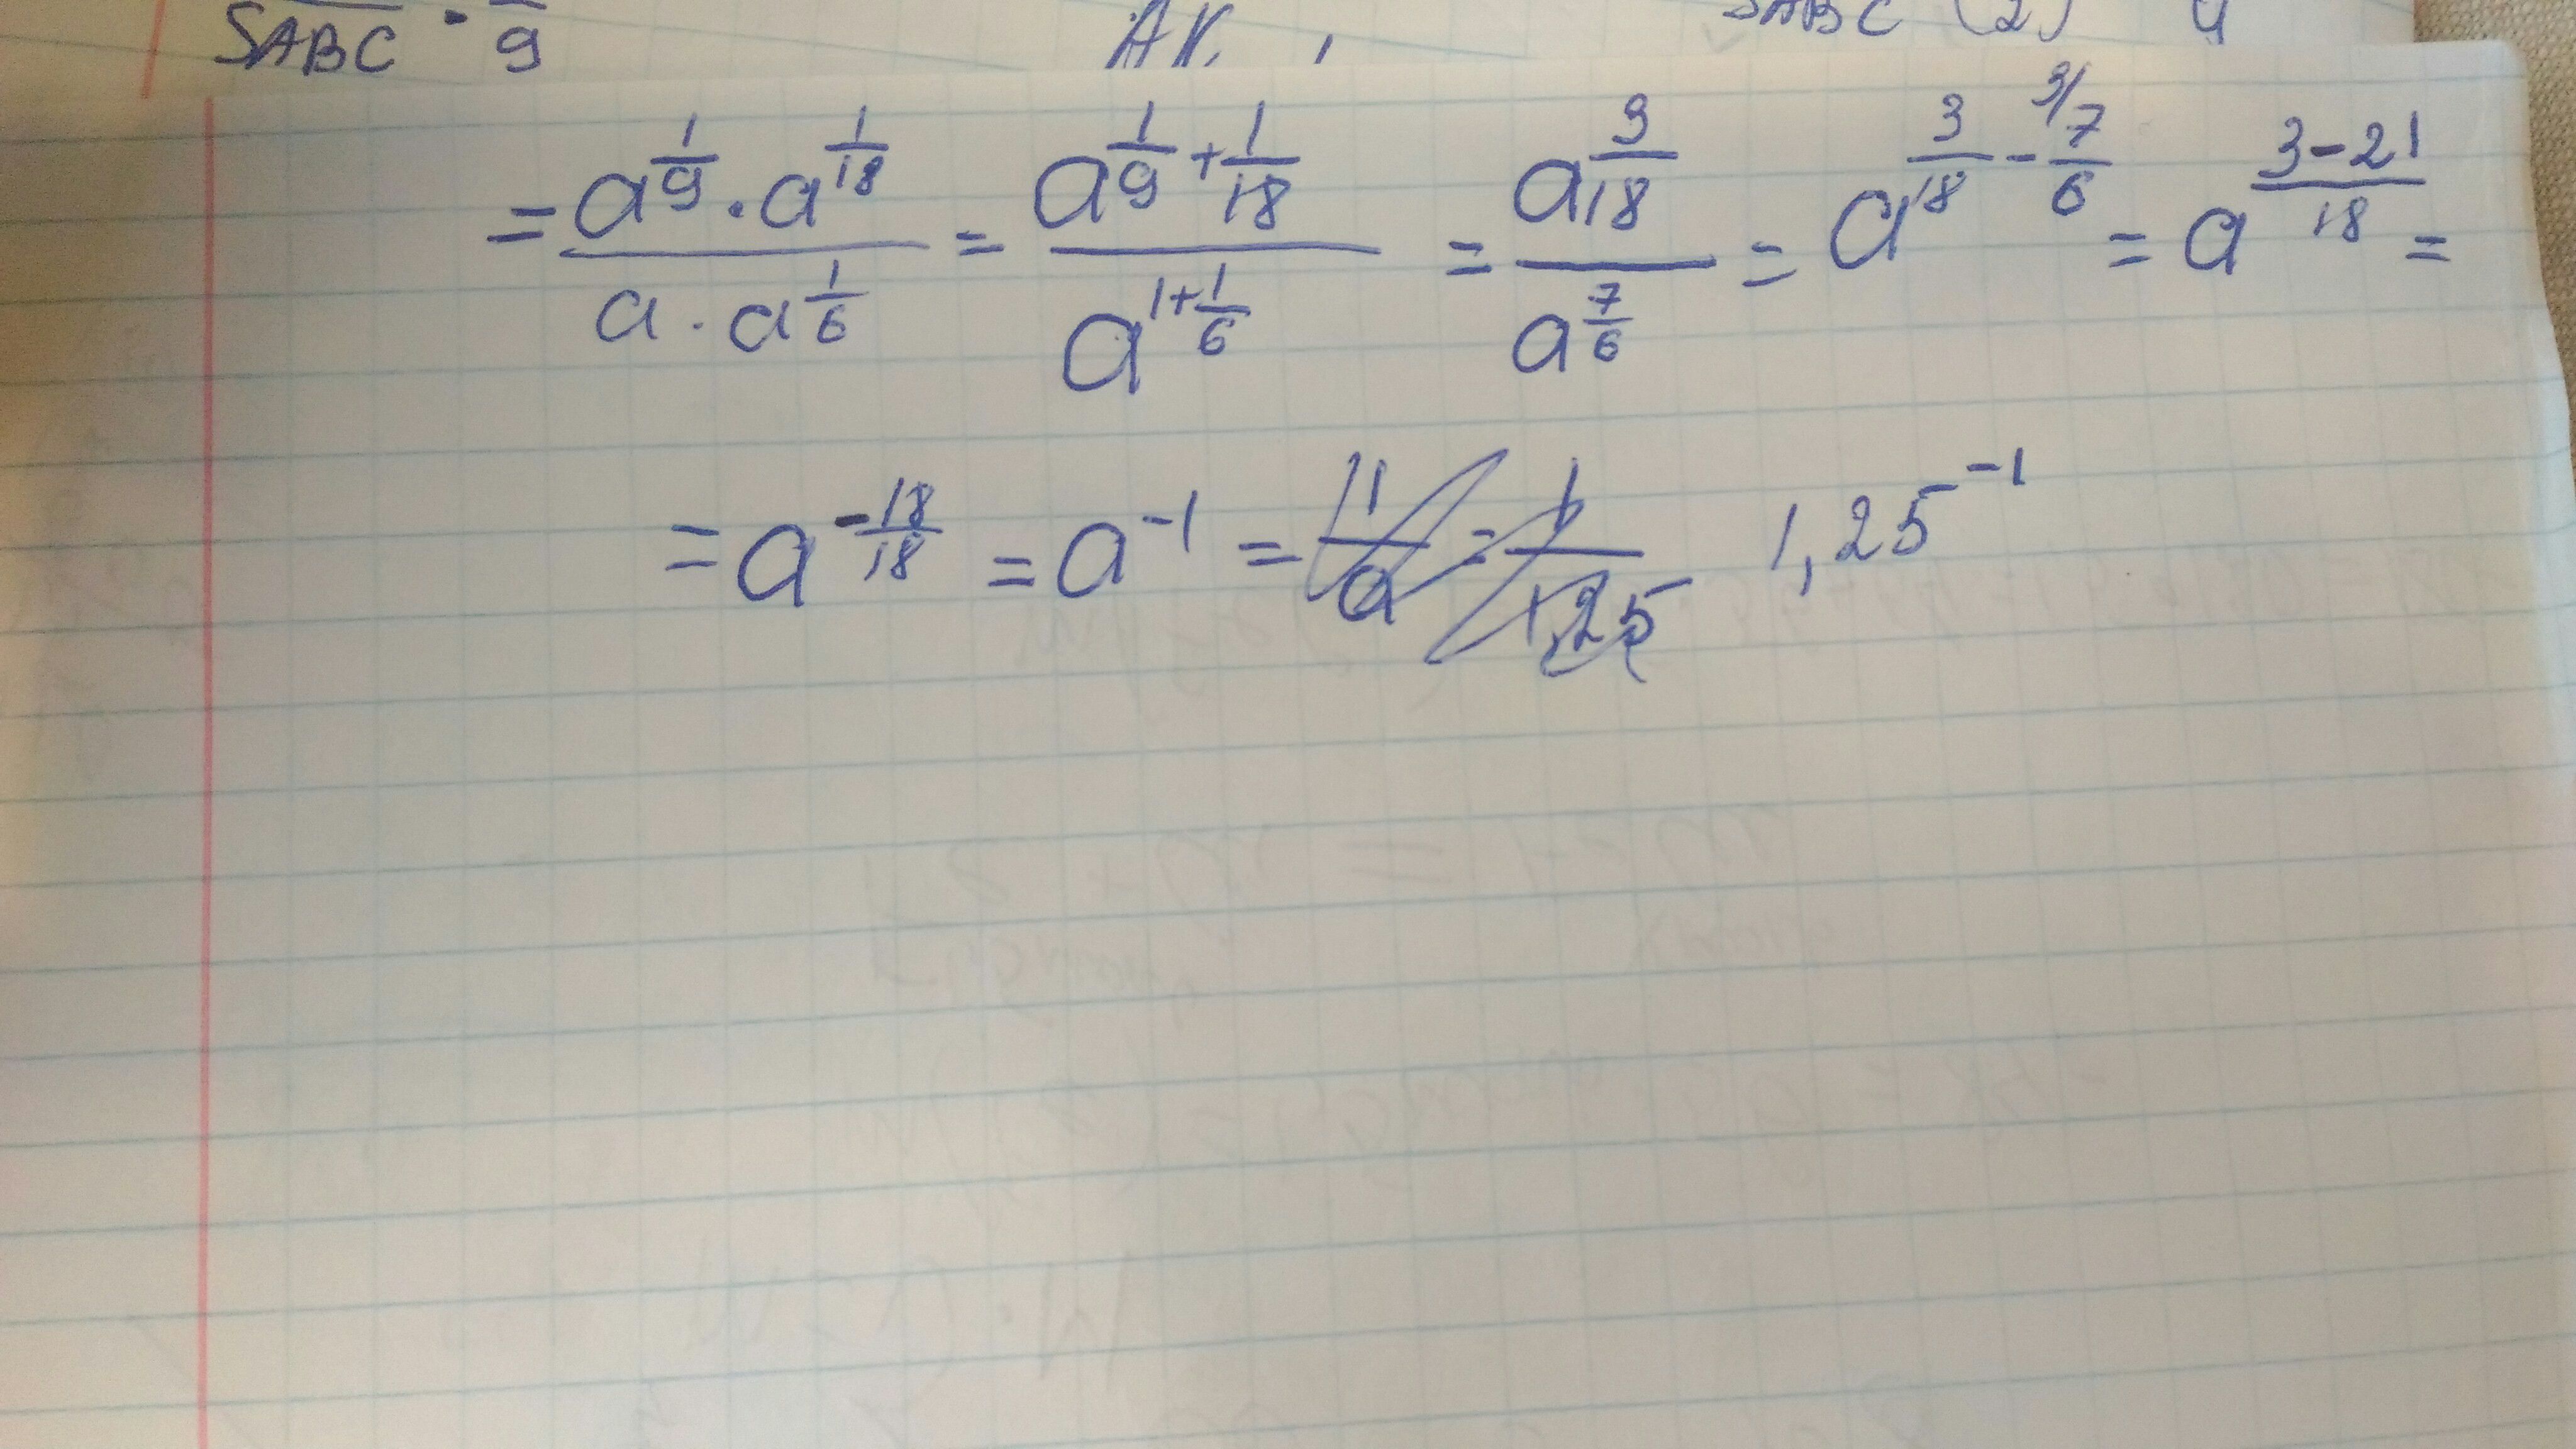 SABC 9 AK, SABC (2) 4
= a^(1/9) · a^(1/18) / (a · a^(1/6)) = a^(1/9 + 1/18) / a^(1 + 1/6) = a^(3/18) / a^(7/6) = a^(3/18 - 3/7/6) = a^((3-21)/18) =
= a^(-18/18) = a^(-1) = 1/a = 1/1,25 1,25^(-1)